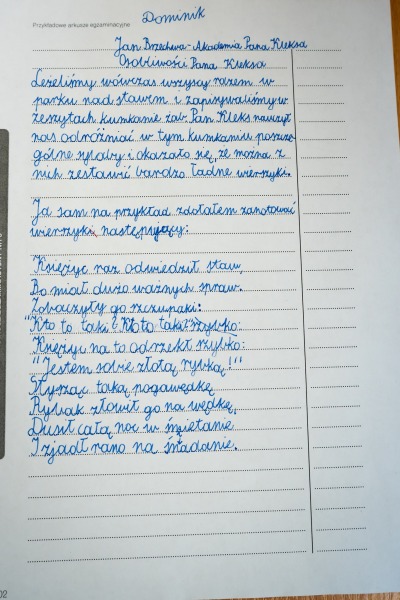 Dominik
Przykładowe arkusze egzaminacyjne
Jan Brzechwa - Akademia Pana Kleksa
Osobliwości Pana Kleksa
Leżeliśmy wówczas wszyscy razem w
parku nad stawem i zapisywaliśmy w
zeszytach kumkanie żab. Pan Kleks nauczył
nas odróżniać w tym kumkaniu poszcze
gólne sylaby i okazało się, że można z
nich zestawić bardzo ładne wierszyki.
Ja sam na przykład zdołałem zanotować
wierszyki następujący:
Księżyc raz odwiedził staw,
Bo miał dużo ważnych spraw.
Zobaczyły go szczupaki:
"Kto to taki? Kto to taki?
Księżyc na to odrzekł szybko:
"Jestem sobie złotą rybką!"
Słysząc taką pogawędkę
Rybak złowił go na wędkę,
Dusił całą noc w śmietanie
I zjadł rano na śniadanie.
02